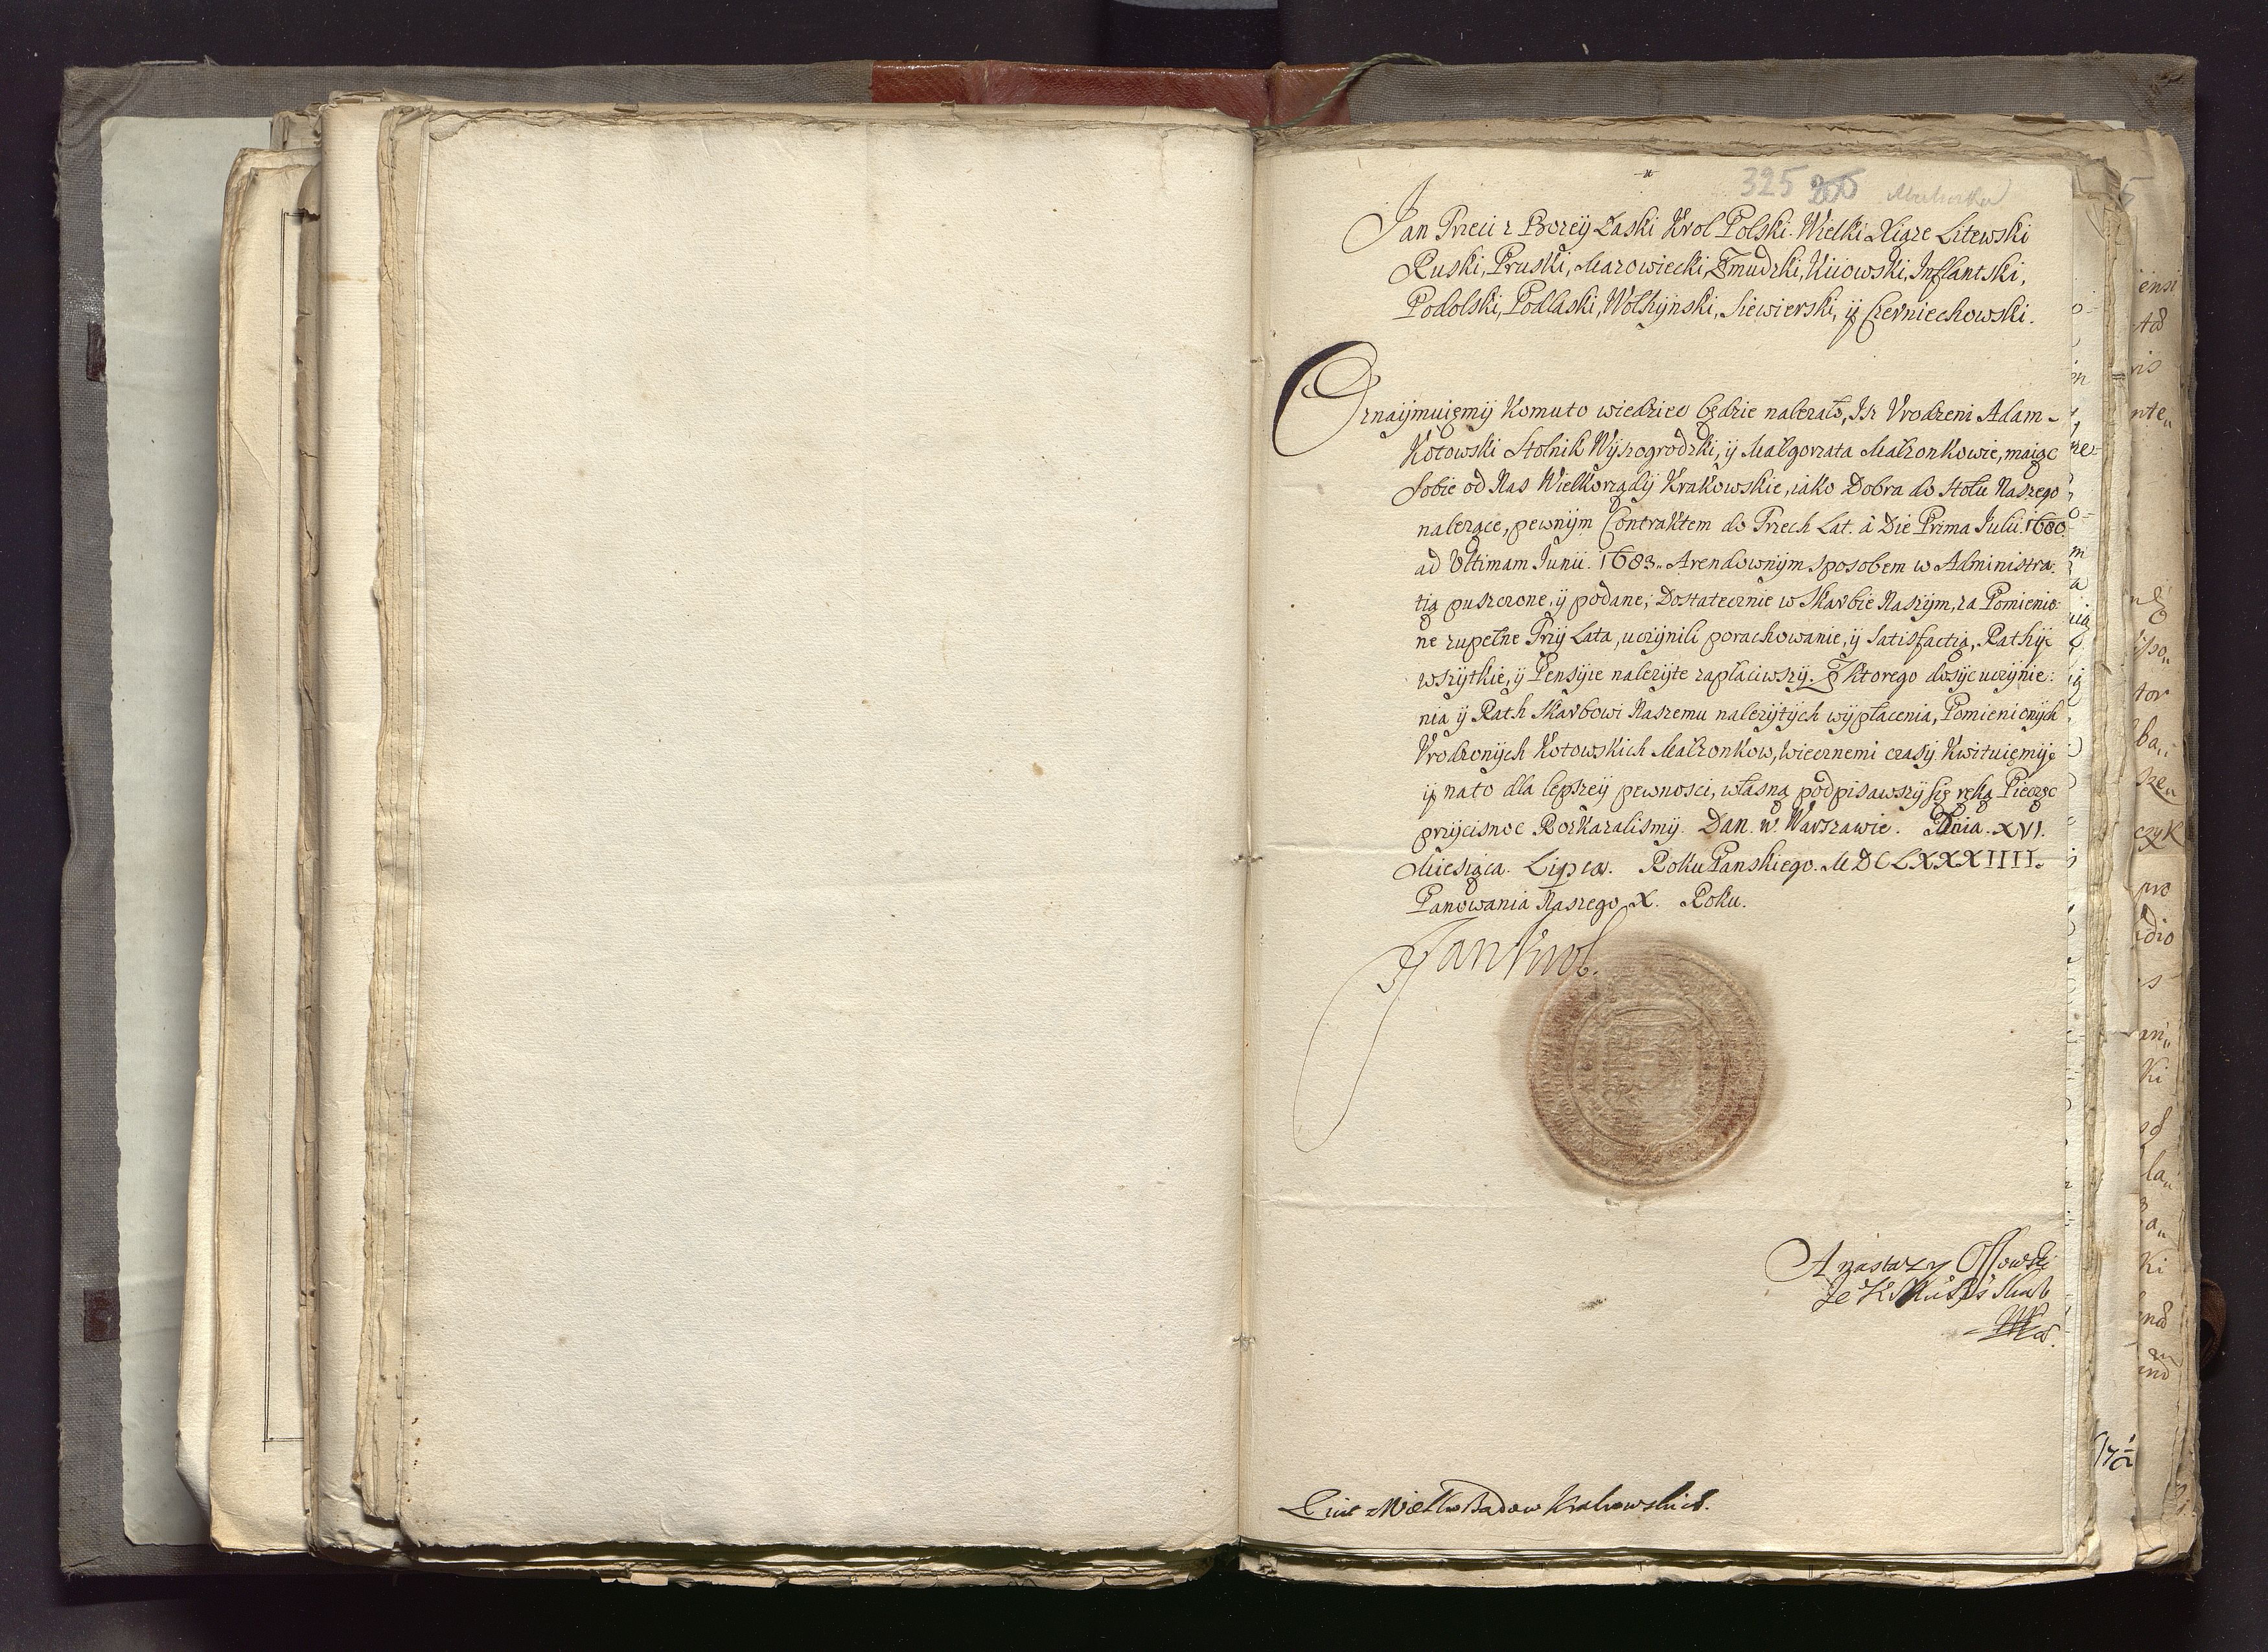 325
Jan Trzeci z Bozey Łaski Krol Polski. Wielki Xiąze Litewski
Ruski, Pruski, Mazowiecki, Zmudzki, Kiiowski, Inflantski,
Podolski, Podlaski, Wołhynski, Siewierski, ÿ Czerniechowski.
Oznaÿmuięmÿ Komuto wiedziec będzie nalezało, Isz Vrodzeni Adam
Kotowski Stolnik Wÿszogrodzki, ÿ Małgorzata Małzonkowie, maiąc
Sobie od Nas Wielkorządÿ Krakowskie, iako Dobra do Stołu Naszego
nalezące, pewnÿm Contraktem do Trzech Lat. à Die Prima Julii. 1680.
ad Vltimam Junii. 1683. Arendownÿm sposobem w Administra:
tią puszczone, ÿ podane; Dostatecznie w Skarbie Naszÿm, za Pomienio:
ne zupełne Trzÿ Lata, uczÿnili porachowanie, ÿ Satisfactią, Rathÿ
wszÿtkie, ÿ Pensÿie nalezÿte zapłaciwszÿ. Z Ktorego dosÿc uczÿnie:
nia ÿ Rath Skarbowi Naszemu nalezÿtÿch wÿpłacenia, Pomienionÿch
Vrodzonÿch Kotowskich Małzonkow, wiecznemi czasÿ Kwituięmÿ
ÿ nato dla lepszeÿ pewnosci, własną podpisawszÿ się ręką Pieczęc
przÿcisnąc Rozkazalismÿ. Dan. w. Warszawie. Dnia. XVI.
Miesiąca. Lipca. Roku Panskiego. MDCLXXXIIII.
Panowania Naszego X. Roku.
Jan Krol.
Anastazy
Krakowskich.